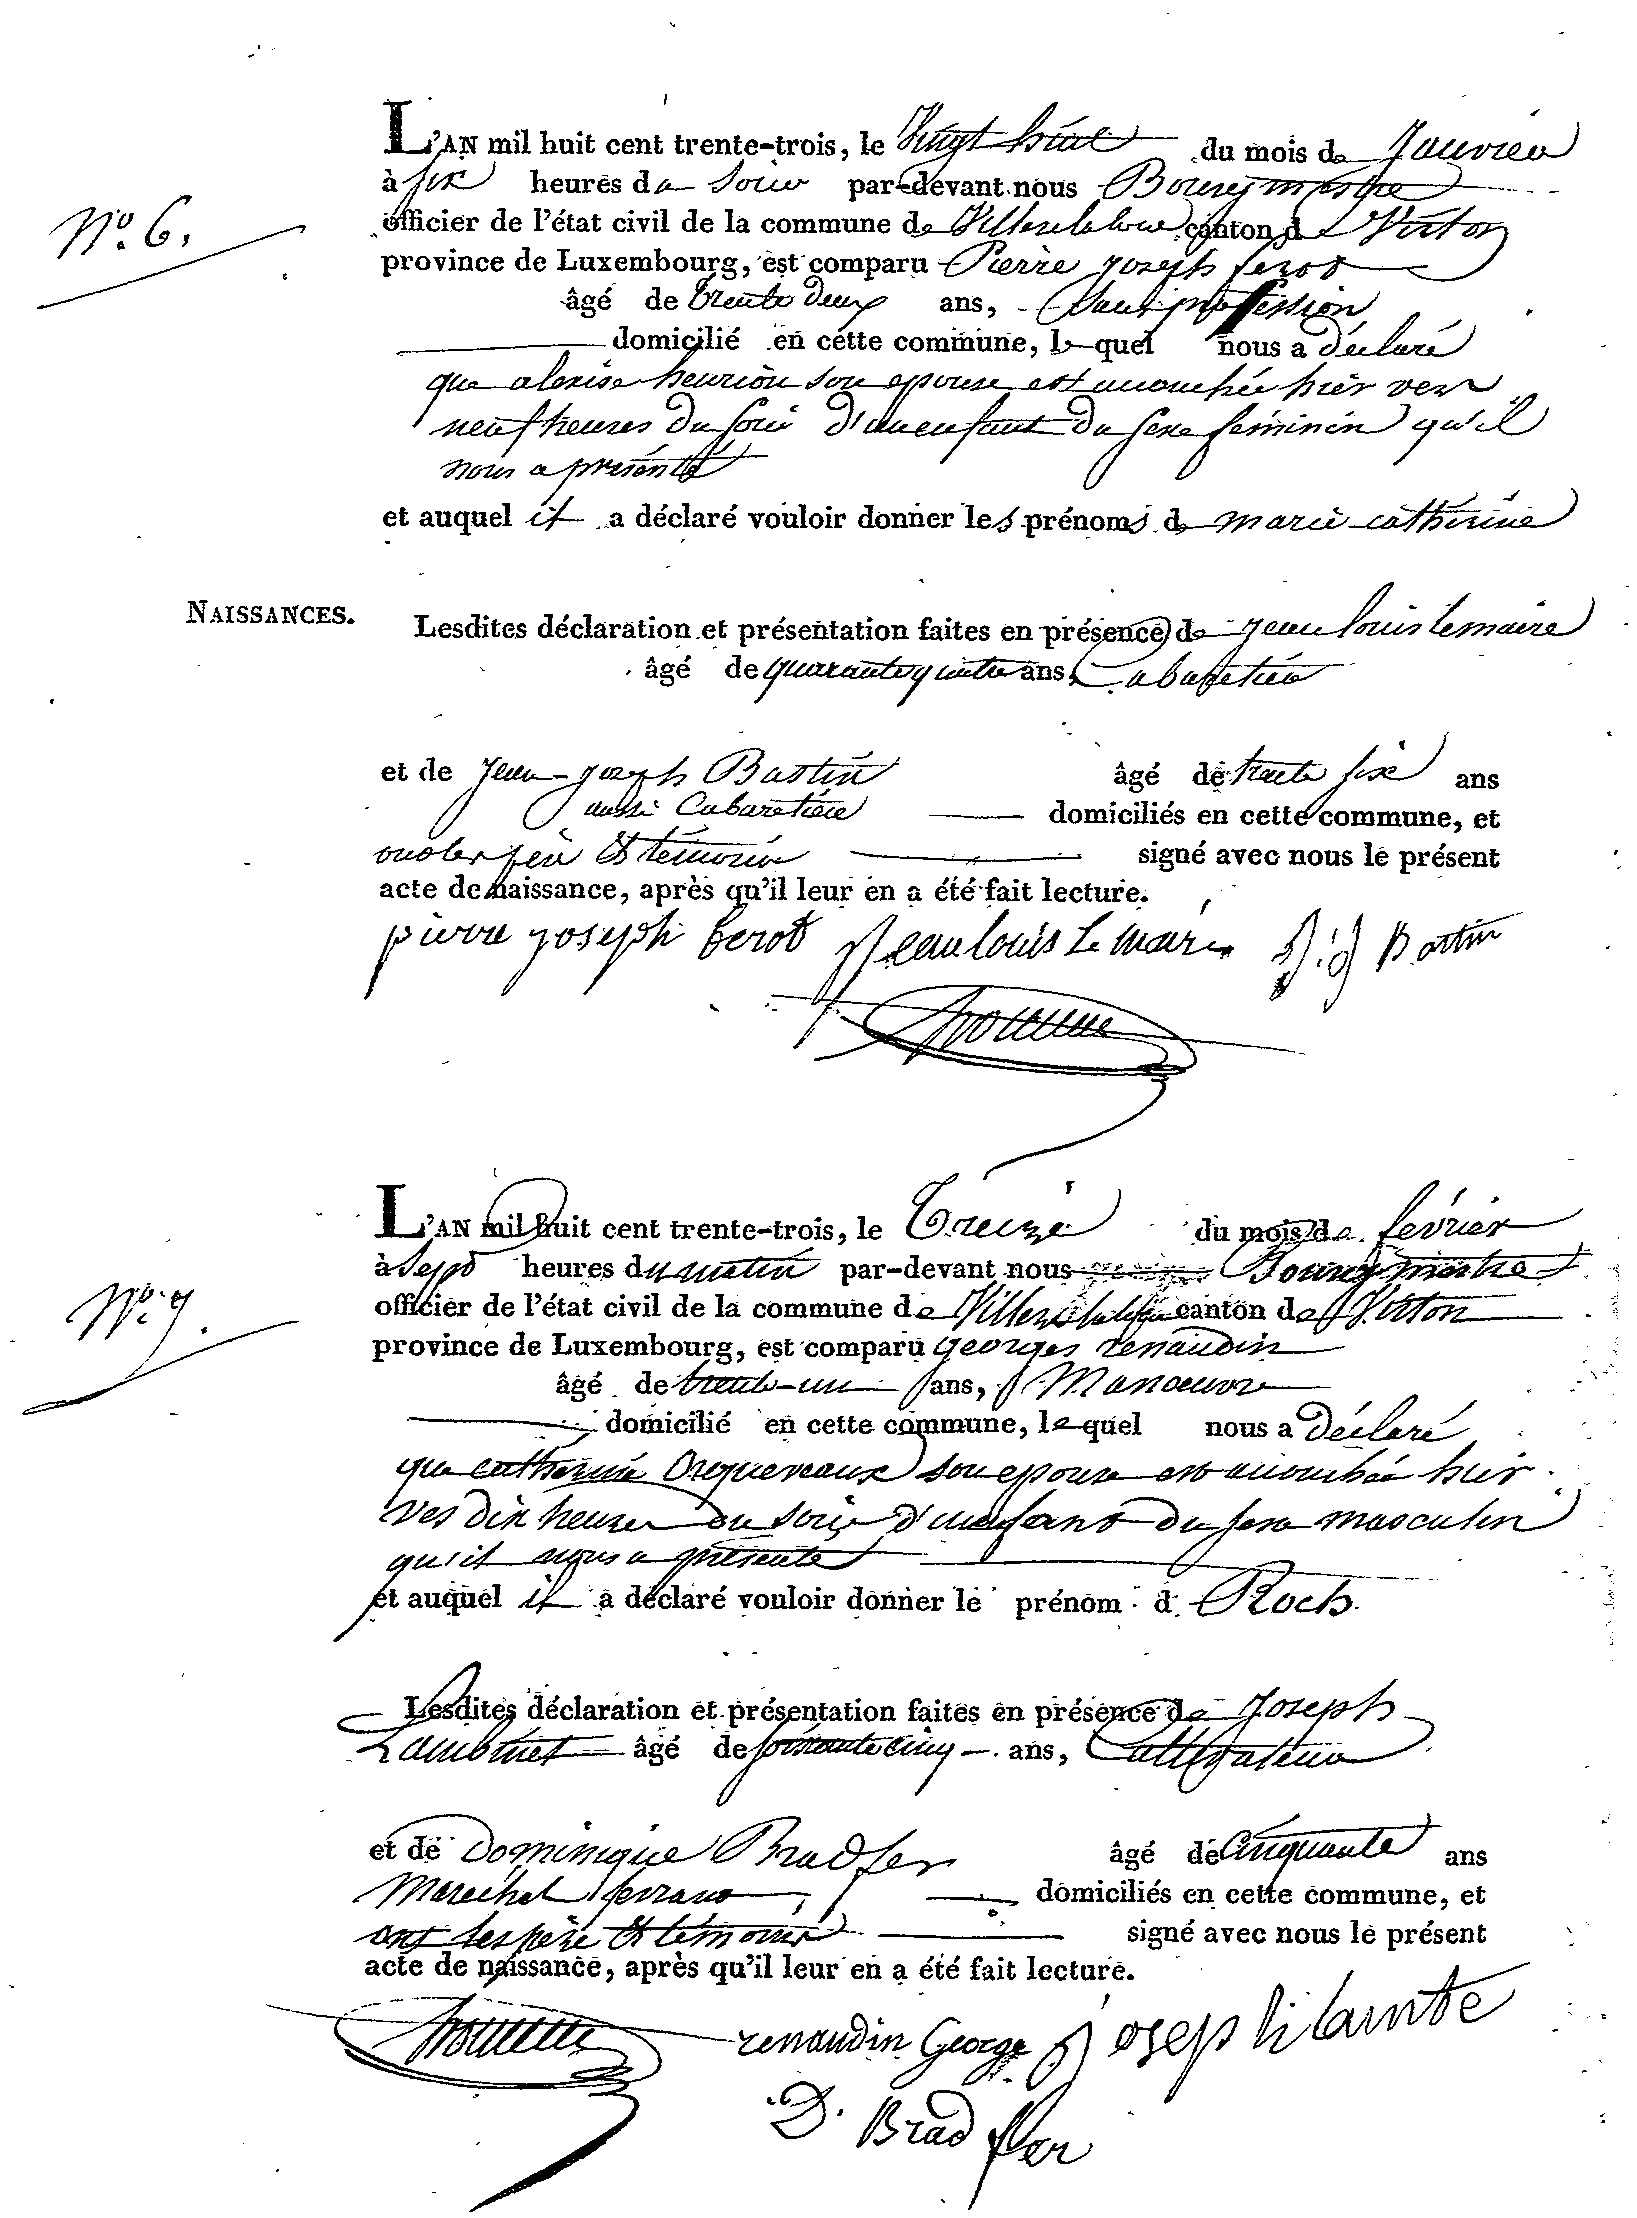 N.º 6.
L'AN mil huit cent trente-trois, le Vingt huit du mois de Janvier
à six heures du Soir par-devant nous Bourgmestre
officier de l'état civil de la commune de Villers la loue canton de Virton
province de Luxembourg, est comparu Pierre joseph ferot
âgé de trente deux ans, Sans profession
domicilié en cette commune, lequel nous a déclaré
que alexise henrion son epouse est accouchée hier vers
neuf heures du soir d'un enfant du sexe féminin qu'il
nous a présenté
et auquel il a déclaré vouloir donner les prénoms de marie cathérine
NAISSANCES.
Lesdites déclaration et présentation faites en présence de jean louis Lemaire
âgé de quarante quatre ans, Cabaretier
et de Jean-joseph Bastin âgé de trente six ans
aussi Cabaretier domiciliés en cette commune, et
ont les père et témoins signé avec nous le présent
acte de naissance, après qu'il leur en a été fait lecture.
pierre joseph ferot Jean louis Le maire J: J Bastin
L'AN mil huit cent trente-trois, le Treize du mois de février
à Sept heures du matin par-devant nous Bourgmestre
officier de l'état civil de la commune de Villers la loue canton de Virton
province de Luxembourg, est comparu georges renaudin
âgé de trente-un ans, Manoeuvre
N.º 7.
domicilié en cette commune, lequel nous a déclaré
que cathérine son epouse est accouchée hier
vers dix heures du soir d'un enfant du sexe masculin
qu'il nous a présenté
et auquel il a déclaré vouloir donner le prénom d Roch
Lesdites déclaration et présentation faites en présence de Joseph
Lambinet âgé de soixante cinq ans, Cultivateur
et de Dominique Bradfer âgé de Cinquante ans
Maréchal ferrant domiciliés en cette commune, et
ont les père et témoins signé avec nous le présent
acte de naissance, après qu'il leur en a été fait lecture.
renaudin George Joseph lambe
D. Bradfer